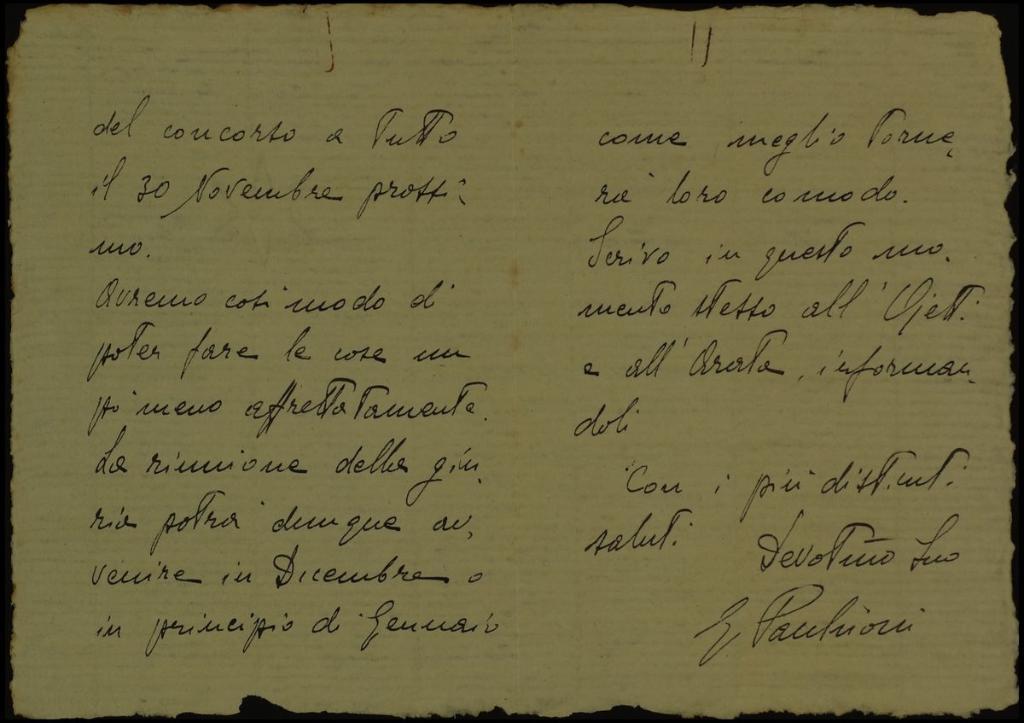 del concorso a tutto
il 30 Novembre prossi-
mo.
Avremo così modo di
poter fare le cose un
pò meno affrettatamente.
La riunione della giu,
ria potrà dunque av,
venire in Dicembre o
in principio di Gennaio
come meglio torne,
rà loro comodo.
Scrivo in questo mo.
mento stesso all' Ojetti
e all' Arata, informan,
doli
Con i più distinti
saluti.
Devotmo Suo